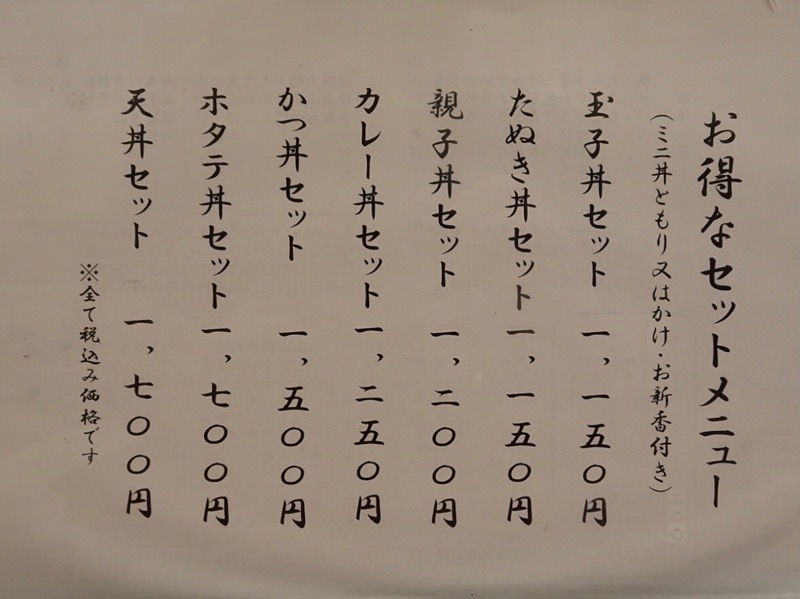 お得なセットメニュー
(ミニ丼ともり又はかけ・お新香付き)
玉子丼セット 一、一五〇円
たぬき丼セット 一、一五〇円
親子丼セット 一、二〇〇円
カレー丼セット 一、二五〇円
かつ丼セット 一、五〇〇円
ホタテ丼セット 一、七〇〇円
天丼セット 一、七〇〇円
※全て税込み価格です